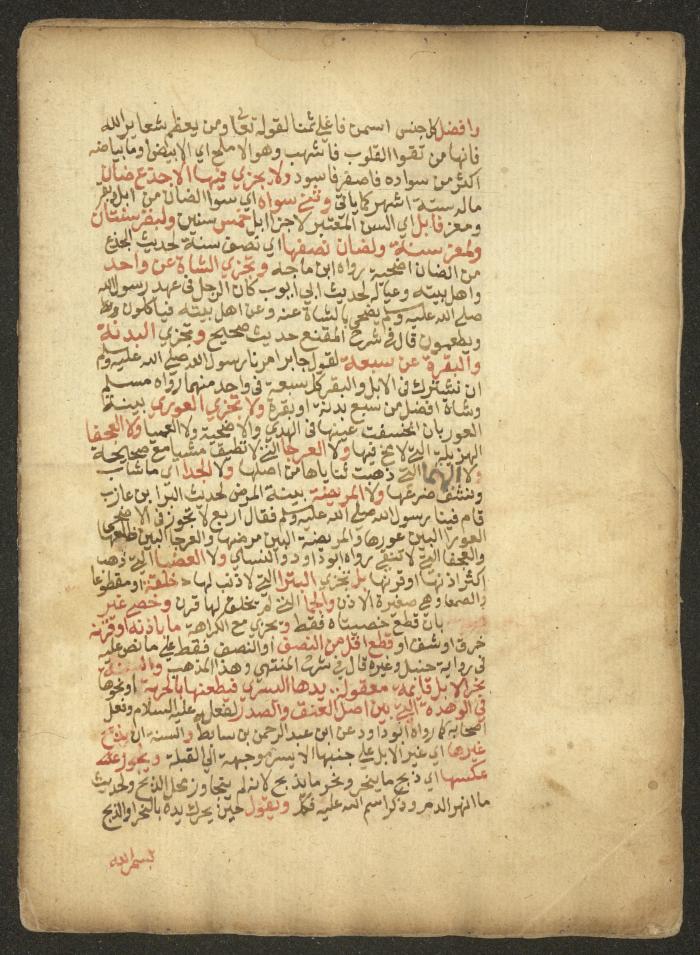 وافضل كل جنس اسمن فاغلى ثمنا لقوله تعالى ومن يعظم شعاير الله
فانها من تقوا القلوب فاشهب وهو الاملح اي الابيض او ما بياضه
اكثر من سواده فاصفر فاسود ولا يجزي فيها الا جذع ضان
ماله ستة اشهر كما ياتي وثني سواه اي سوا الضان من ابل وبقر
ومعز فابل اي السن المعتبر لاجزا ابل خمس سنين ولبقر سنتان
ولمعز سنة ولضان نصفها اي نصف سنة لحديث الجذع
من الضان اضحية رواه ابن ماجه وتجزي الشاة عن واحد
واهل بيته وعياله لحديث ابي ايوب كان الرجل في عهد رسول الله
صلى الله عليه وسلم يضحي بالشاة عنه وعن اهل بيته فياكلون
ويطعمون قال في شرح المقنع حديث صحيح وتجزي البدنة
والبقرة عن سبعة لقول جابر امرنا رسول الله صلى الله عليه وسلم
ان نشترك في الابل والبقر كل سبعة في واحد منهما رواه مسلم
وشاة افضل من سبع بدنة او بقرة ولا تجزي العوري بينة
العور بان انخسفت عينها في الهدي ولا اضحية ولا العميا ولا العجفا
الهزيلة التي لا مخ فيها ولا العرجا التي لا تطيق مشيا مع صحيحة
ولا الهتما التي ذهبت ثناياها من اصلها ولا الجدا اي ما شاب
ونشف ضرعها ولا المريضة بينة المرض لحديث البرا بن عازب
قام فينا رسول الله صلى الله عليه وسلم فقال اربع لا تجوز في الاضحى
العورا البين عورها والمريضة البين مرضها والعرجا البين ظلعها
والعجفا التي لا تنقى رواه ابو داود والنساي ولا العضبا التي ذهب
اكثر اذنها او قرنها بل تجزي البترا التي لا ذنب لها خلقة او مقطوعا
والصمعا وهي صغيرة الاذن والجما التي لم يخلق لها قرن وخصي غير
بان قطع خصيتاه فقط ويجزي مع الكراهة ما باذنه او قرنه
خرق او شق او قطع اقل من النصف او النصف فقط على ما نص عليه
في رواية حنبل وغيره قال في شرح المنتهى وهذا المذهب والسنة
نحر الابل قايمة معقولة يدها اليسرى فيطعنها بالحربة او نحوها
في الوهدة التي بين اصل العنق والصدر لفعله عليه السلام وفعل
اصحابه كما رواه ابو داود عن ابن عبد الرحمن بن سابط والسنة ان يذبح
غيرها اي غير الابل على جنبها الايسر موجهة الى القبلة ويجوز
عكسها اي ذبح ما ينحر ونحر ما يذبح لانه لم يتجاوز محل الذبح ولحديث
ما انهر الدم وذكر اسم الله عليه فكل ويقول حين يحرك يده بالنحر او الذبح
بسم الله